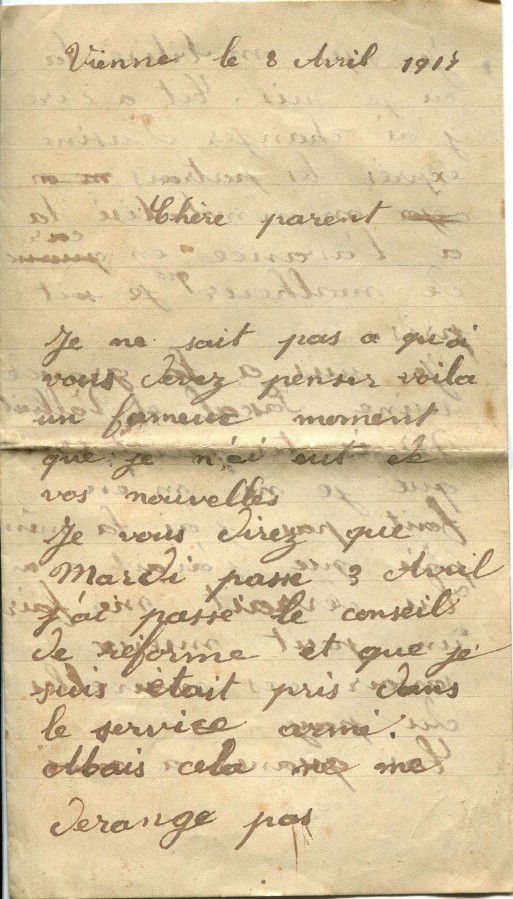 Vienne le 8 Avril 1917
Chère parent
Je ne sait pas a quoi
vous devez penser voila
un fameux moment
que je n'ai eut de
vos nouvelles
Je vous direz que
Mardi passe 3 Avril
j'ai passé le conseil
de réforme et que je
suis était pris dans
le service armé.
Mais cela me me
derange pas